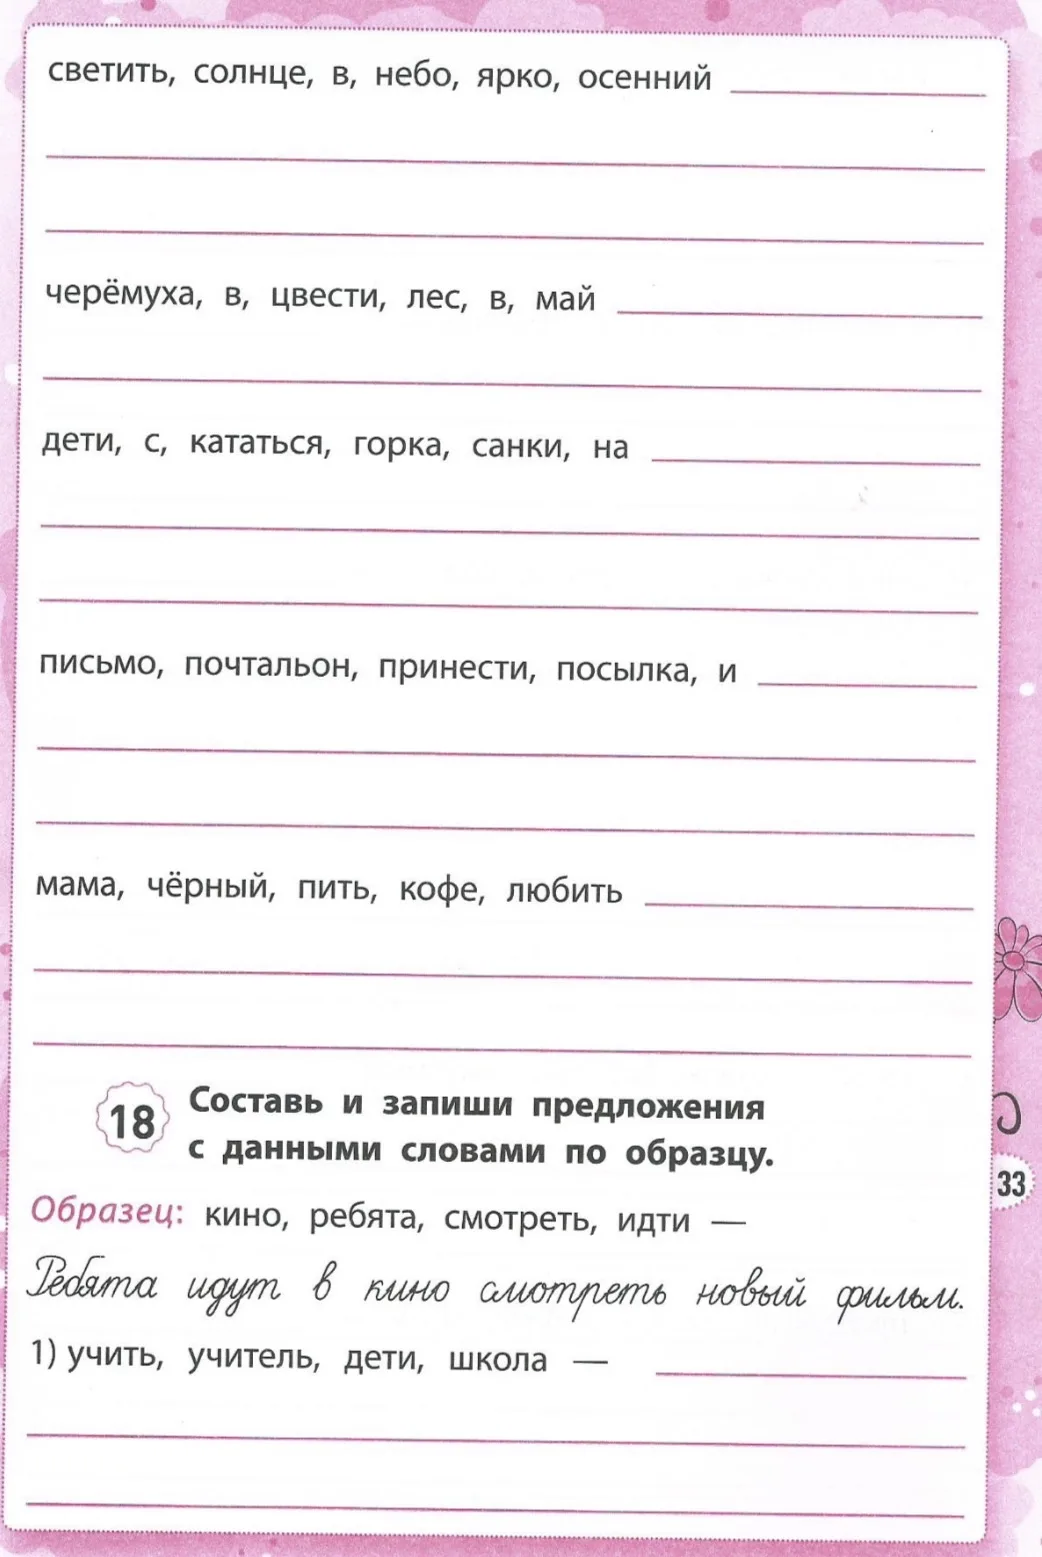 светить, солнце, в, небо, ярко, осенний
черёмуха, в, цвести, лес, в, май
дети, с, кататься, горка, санки, на
письмо, почтальон, принести, посылка, и
мама, чёрный, пить, кофе, любить
18 Составь и запиши предложения
с данными словами по образцу.
Образец: кино, ребята, смотреть, идти —
Ребята идут в кино смотреть новый фильм.
1) учить, учитель, дети, школа —
33